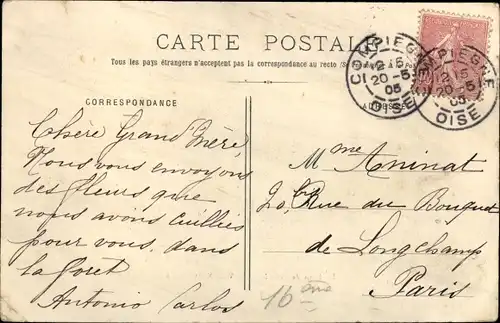 CARTE POSTALE
Tous les pays étrangers n'acceptent pas la correspondance au recto
CORRESPONDANCE
COMPIEGNE
20-5
05
OISE
COMPIEGNE
20-5
05
OISE
Chère Grand Mère,
Nous vous envoyons
des fleurs que
nous avons cuillies
pour vous dans
la foret
Antonio Carlos
Mme Aninat
20 bis Rue du Bouquet
de Longchamp
Paris
16ème